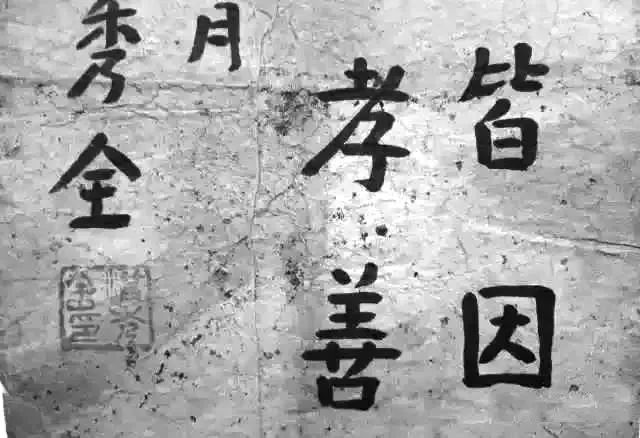 皆因
孝善
月
秀全